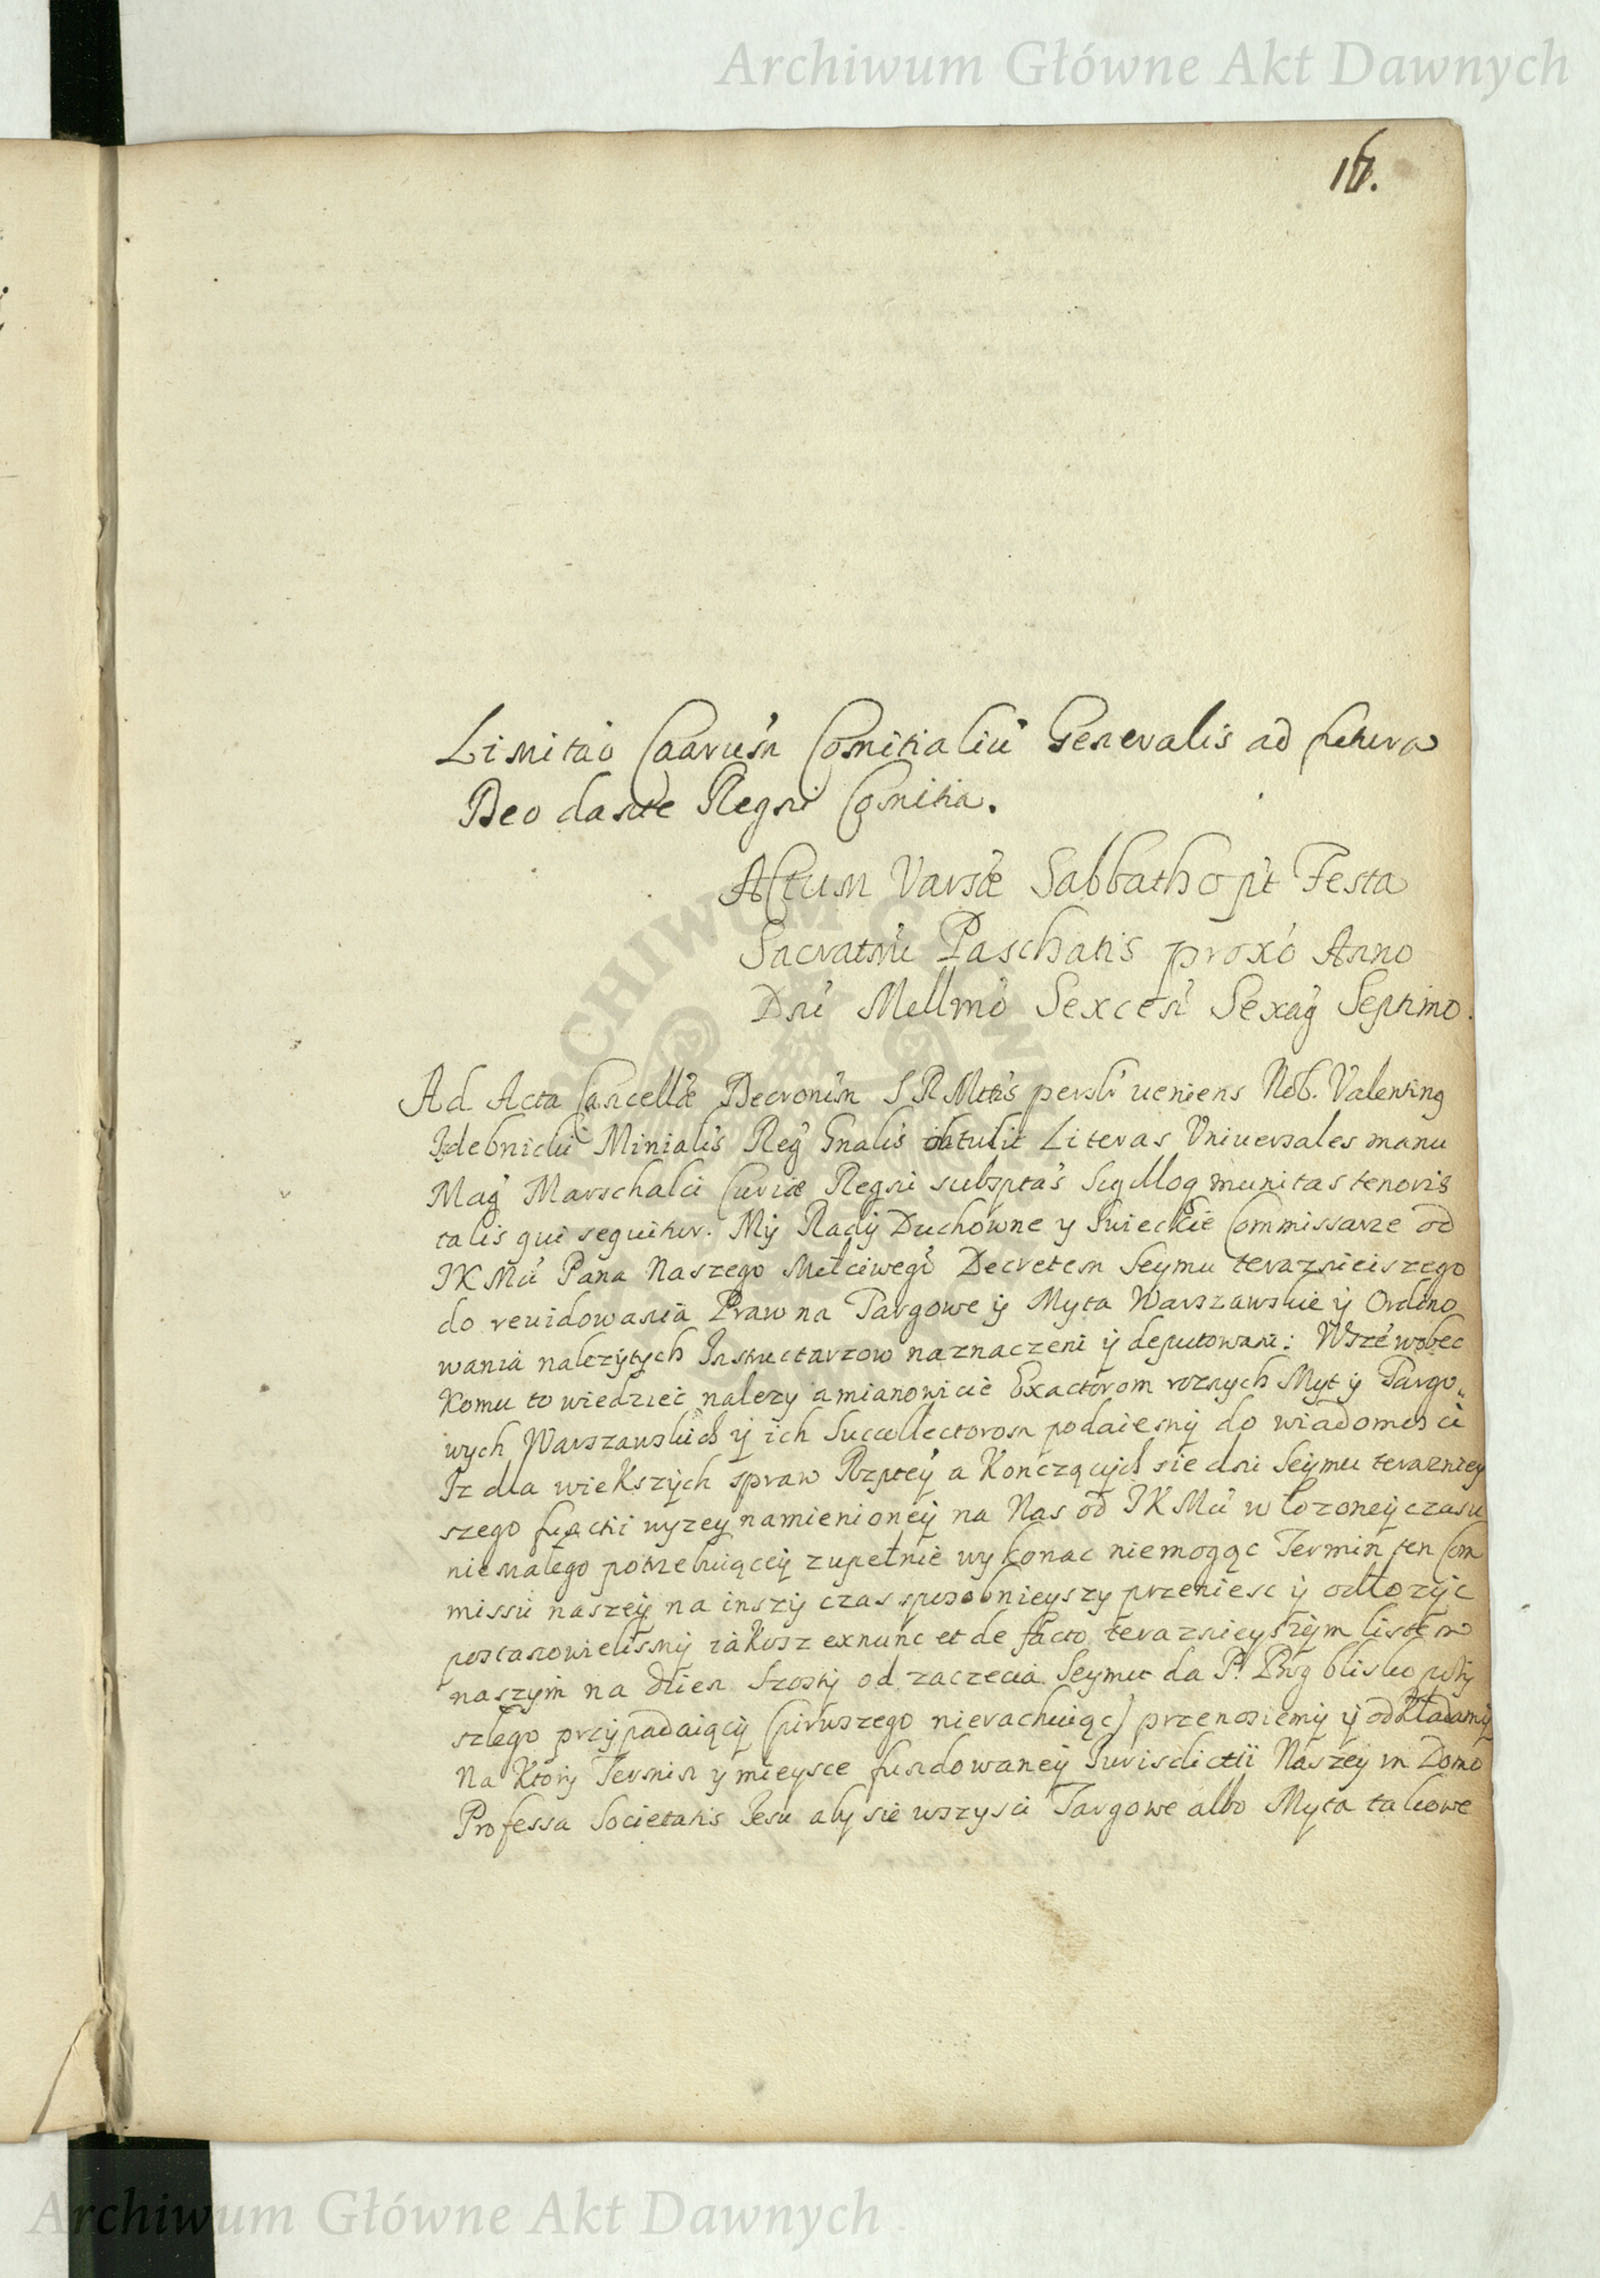 Archiwum Główne Akt Dawnych
16.
Limitaō Caarum Comitialiū Generalis ad futura
Deo dante Regni Comitia.
Actum Varsæ Sabbatho pt Festa
Sacratmi Paschatis proxō Anno
Dni Mellmō Sexcen Sexag Septimo.
Ad Acta Cancellæ Decronum S R Mttis persłr ueniens Nob. Valentinq
Zdebnicki Minialis Reg Gnalis obtulit Literas Vniuersales manu
Mag Marschalci Curiæ Regni subsptas Sugilloq munitas tenoris
talis qui sequitur. My Rady Duchowne y Swieckie Commissarze od
IKMci Pana Naszego Miłciwego Decretem Seymu terazniciszego
do reuidowania Praw na Targowe ÿ Myta Warszawskie ÿ Ordino
wania nalezytych Instructarzow naznaczeni ÿ deputowani: Wszé wobec
Komu to wiedziec nalezy a mianowicie Exactorom roznych Myt ÿ Targo„
wych Warszawskich ÿ ich Succollectorom podaiemy do wiadomosci
Iz dla wiekszych spraw Rzptey a Konczących sie dni Seymu terazniey
szego funcki wyzey namienioney na Nas od IKMci w łozoney czasu
niemałego potrzebuiącey zupełnie wykonac niemogąc Termin ten Com
missii naszey na inszy czas sposobnieyszy przeniesc ÿ odłozyc
postanowielismy iakosz exnunc et de facto terazniey szym listem
naszym na dzien Szosty od zaczecia Seymu da P. Bog blisko
szłego przypadaiący (pirwszego nierachuiąc) przenosiemy ÿ odkładamy
Na Ktory Termin y mieysce fundowaney Jurisdictii Naszey in Domo
Professa Societatis Jesu aby sie wszysci Targowe albo Myta takowe
Archiwum Główne Akt Dawnych